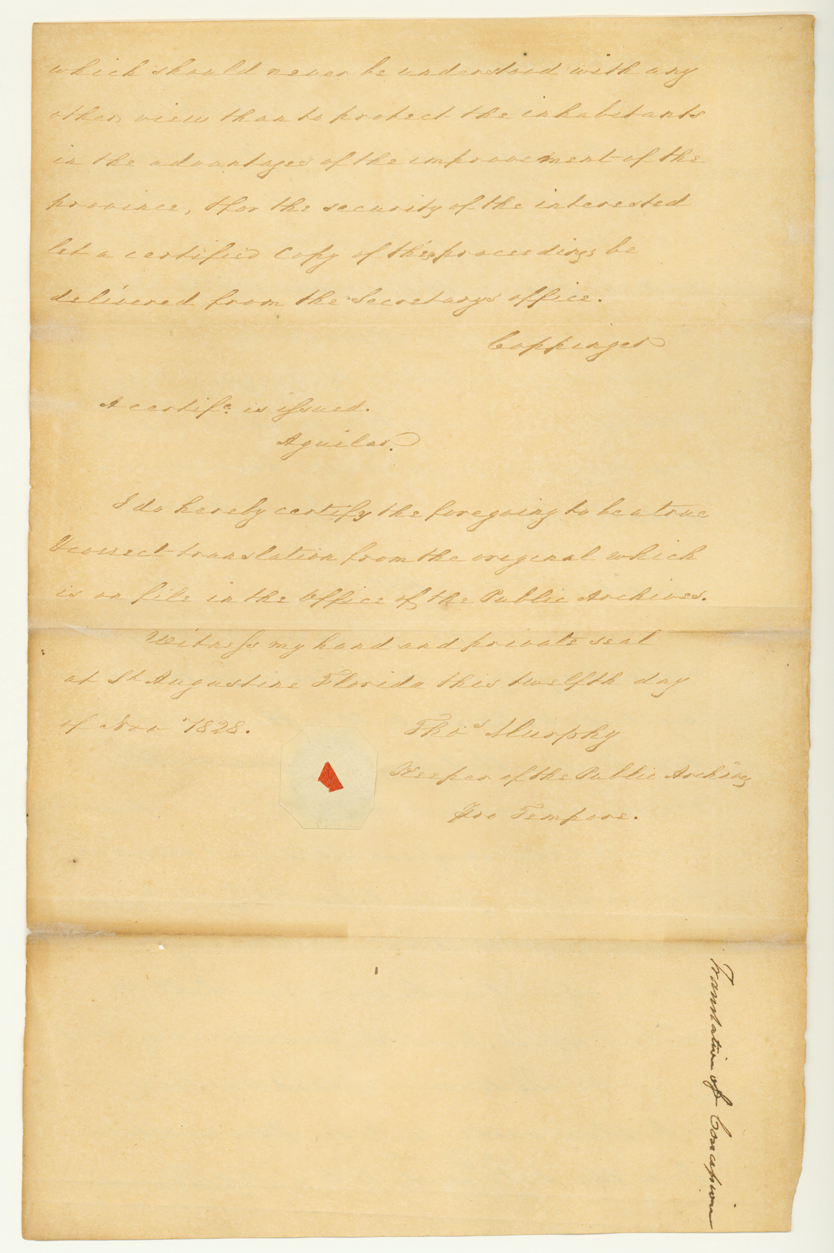 which should never be understood with any
other view than to protect the inhabitants
in the advantages of the improvement of the
province, & for the security of the interested
let a certified copy of the proceedings be
delivered from the Secretarys office.
Coppinger
A certifc. is issued.
Aguilar.
I do hereby certify the foregoing to be a true
& correct translation from the original which
is on file in the Office of the Public Archives.
Witness my hand and private seal
at St Augustine Florida this twelfth day
of Novr 1828.
Thos Murphy
Keeper of the Public Archives
Pro Tempore.
Translation of Concession